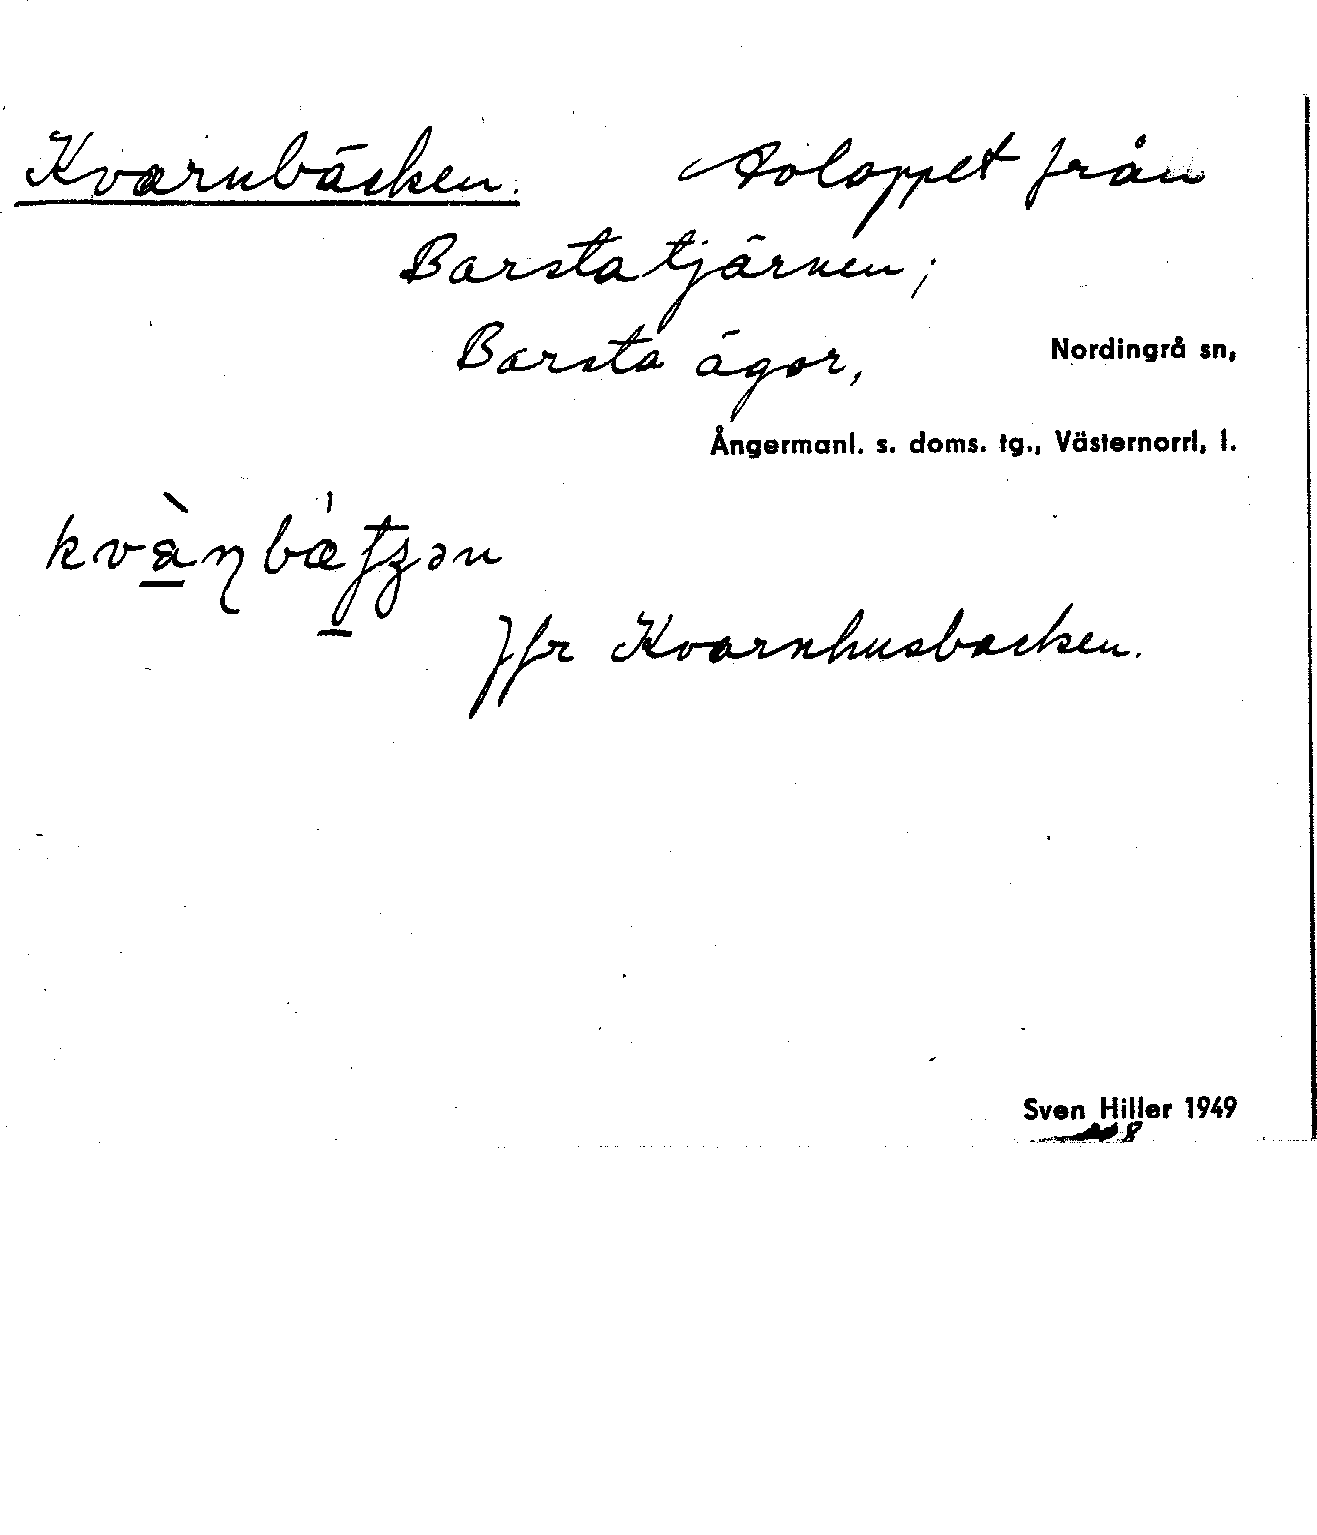 Kvarnbäcken. Avloppet från
Barstatjärnen;
Barsta ägor, Nordingrå sn,
Ångermanl. s. doms. tg., Västernorrl. l.
Jfr Kvarnhusbacken.
Sven Hiller 1949
8